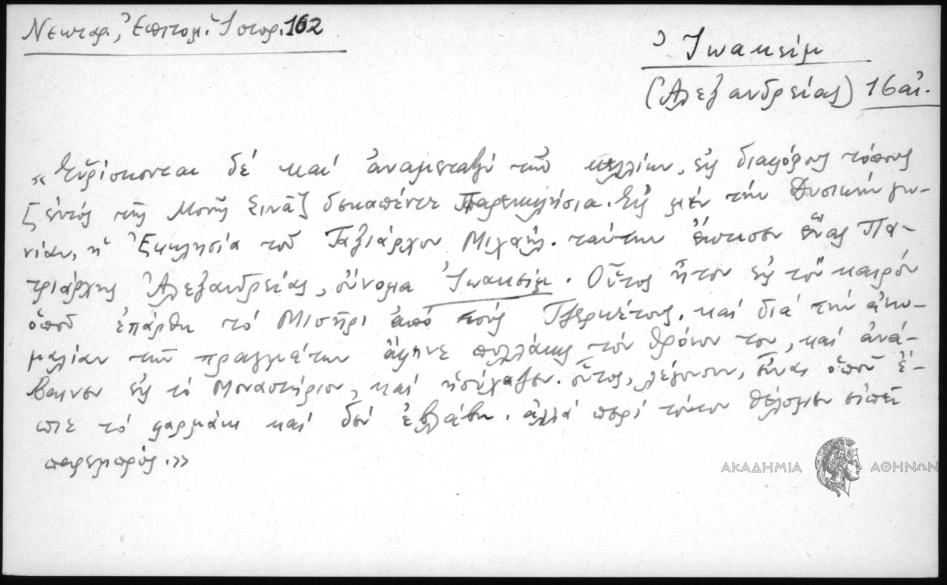 Νεκταρ., Ἐπιτομ. Ἱστορ. 162
Ἰωακείμ
(Ἀλεξανδρείας) 16 αἰ.
«Εὑρίσκονται δέ καί ἀναμεταξύ τῶν κελλίων, εἰς διαφόρους τόπους
[ἐντός τῆς Μονῆς Σινᾶ] δεκαπέντε Παρεκκλήσια. Εἰς μέν τήν δυτικήν γω-
νίαν, ἡ Ἐκκλησία τοῦ Ταξιάρχου Μιχαήλ. ταύτην ἔκτισεν ἕνας Πα-
τριάρχης Ἀλεξανδρείας, ὄνομα Ἰωακείμ. Οὗτος ἦτον εἰς τόν καιρόν
ὁποῦ ἐπάρθη τό Μισῆρι ἀπό τούς Τζερκέτους. καί διά τήν ἀνω-
μαλίαν τῶν πραγμάτων ἄφηνε πολλάκις τόν θρόνον του, καί ἀνέ-
βαινεν εἰς τό Μοναστήριον, καί ἡσύχαζεν. οὗτος, λέγουσιν, εἶναι ὁποῦ ἔ-
πιε τό φαρμάκι καί δέν ἐβλάβη. ἀλλά περί τούτου θέλομεν εἰπεῖ
παρεμπρός.»
ΑΚΑΔΗΜΙΑ ΑΘΗΝΩΝ